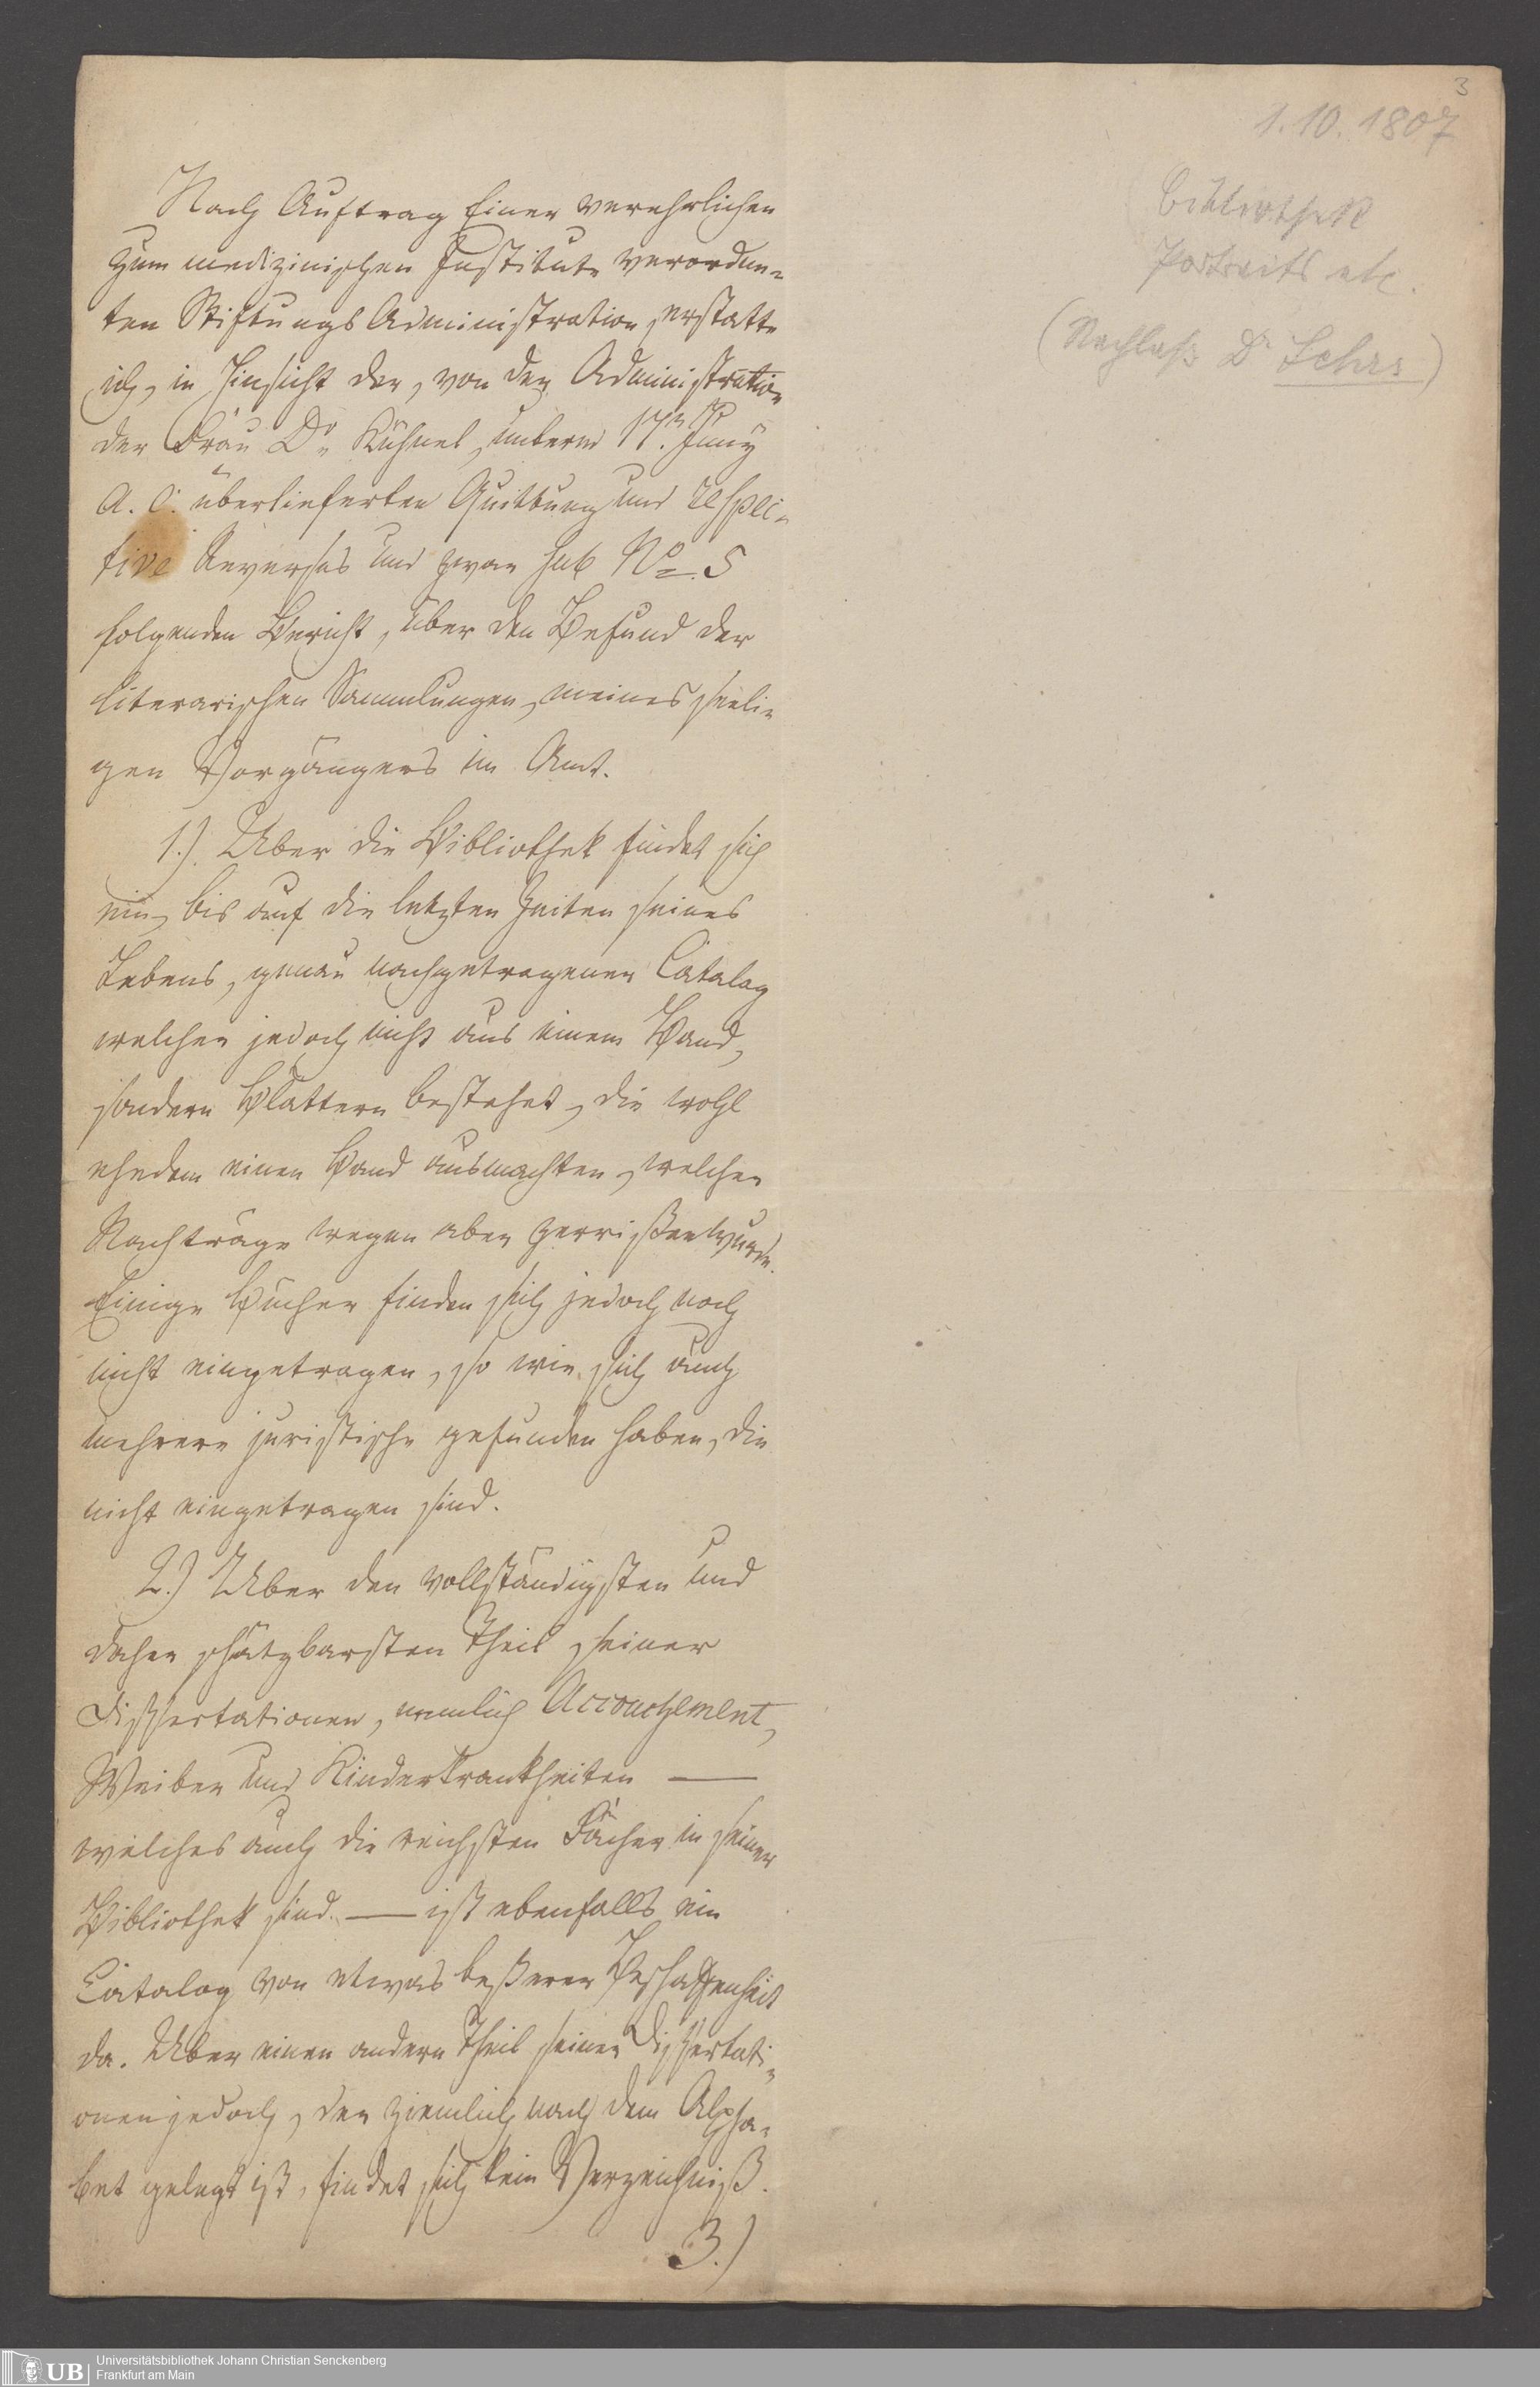 3
1.10.1807
Bibliothek
Portraits etc.
(Nachlaß Dr Lehrs)
Nach Auftrag Einer verehrlichen
zum medizinischen Institute verordne-
ten Stiftungs Administration, erstatte
ich, in Hinsicht der, von der Administration
der Frau Dr. Kühnel, unterm 17n Juny
a. c. überlieferten Quittung und respec-
tive Reverses und zwar sub No. 5
folgenden Bericht, über den Befund der
literarischen Sammlungen, meines seeli-
gen Vorgängers im Amt.
1.). Uber die Bibliothek findet sich
ein, bis auf die letzten Zeiten seines
Lebens, genau nachgetragener Catalog
welcher jedoch nicht aus einem Band,
sondern Blättern bestehet, die wohl
ehedem einen Band ausmachten, welcher
Nachträge wegen aber zerrißen wurde.
Einige Bücher finden sich jedoch noch
nicht eingetragen, so wie sich auch
mehrere juristische gefunden haben, die
nicht eingetragen sind.
2.) Uber den vollständigsten und
daher schätzbarsten Theil seiner
Dissertationen, nemlich Accouchement,
Weiber und Kinderkrankheiten —
welches auch die reichsten Fächer in seiner
Bibliothek sind. — ist ebenfalls ein
Catalog von etwas beßerer Beschaffenheit
da. Uber einen andern Theil seiner Dissertati-
onen jedoch, der ziemlich nach dem Alpha-
bet gelegt ist, findet sich kein Verzeichniß.
3.)
UB
Universitätsbibliothek Johann Christian Senckenberg
Frankfurt am Main